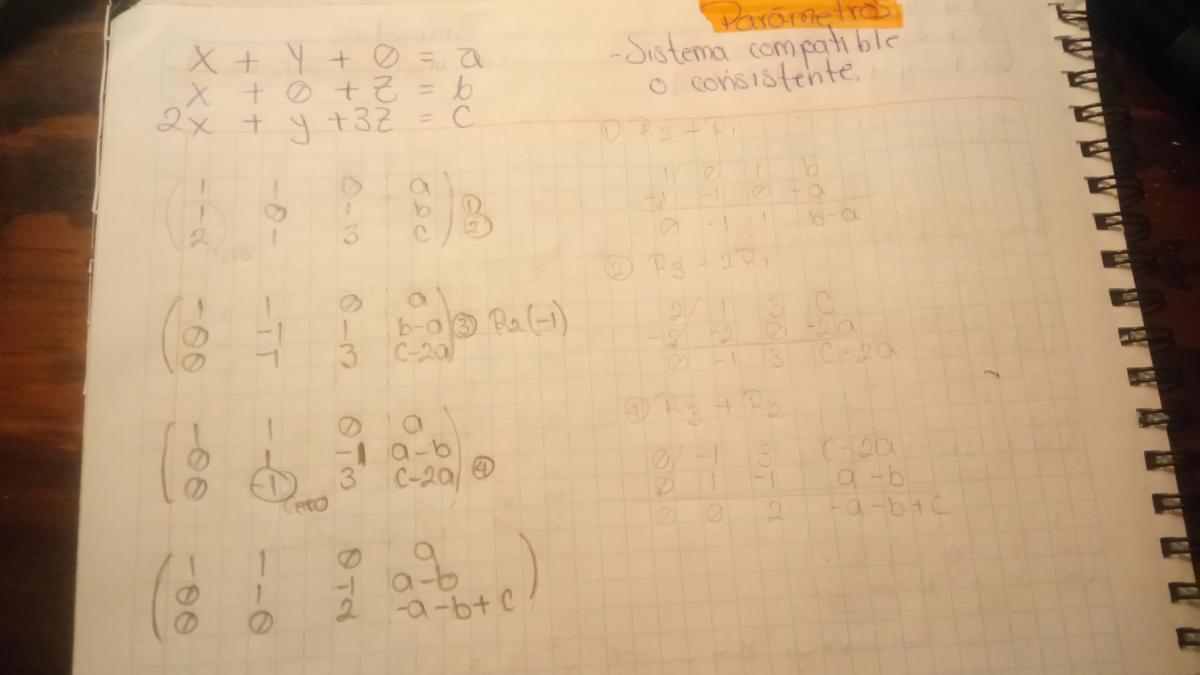 Parámetros
x + y + 0 = a
x + 0 + z = b
2x + y + 3z = c
-Sistema compatible
o consistente.
1 1 0 a
1 0 1 b ①
2 1 3 c ②
① R2 + R1
1 0 1 b
-1 -1 0 -a
0 -1 1 b-a
1 1 0 a
0 -1 1 b-a ③ R2(-1)
0 -1 3 c-2a
② R3 - 2R1
2 1 3 c
-2 -2 0 -2a
0 -1 3 c-2a
1 1 0 a
0 1 -1 a-b
0 -1 3 c-2a ④
cero
④ R3 + R2
0 -1 3 c-2a
0 1 -1 a-b
0 0 2 -a-b+c
1 1 0 a
0 1 -1 a-b
0 0 2 -a-b+c